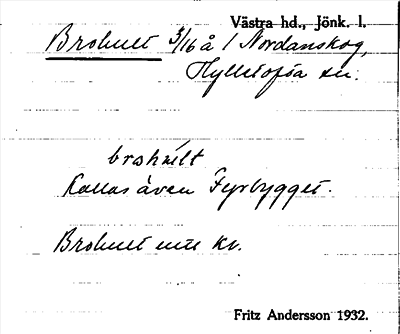 Västra hd., Jönk. l.
Brohult 3/16 å 1 Nordanskog,
Hylletofta sn.
brohult
Kallas även Fyrbygget.
Brohult inte kv.
Fritz Andersson 1932.